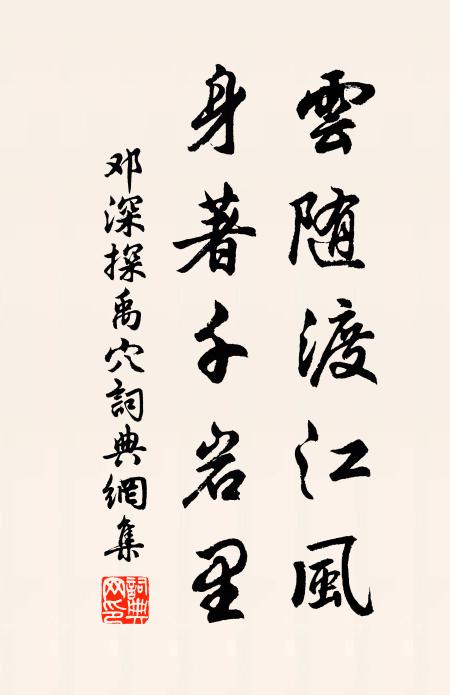 雲随渡江風
身著千岩里
邓深探禹穴詞典網集
詞典网印